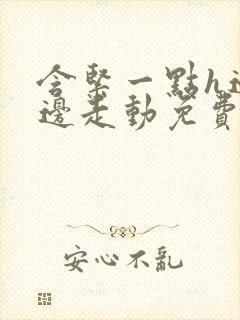 含緊一點h邊
邊走動免費
安心不亂